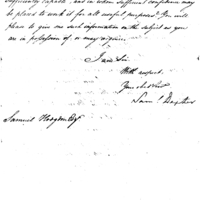 sufficiently capable and in whom sufficient confidence may
be placed to need it for all useful purposes. You will
please to give me such information on the subject as you
are in possession of or may acquire.
I am Sir
With respect
Your obt Servt
Sam. Dexter
Samuel Hodgdon Esqr.